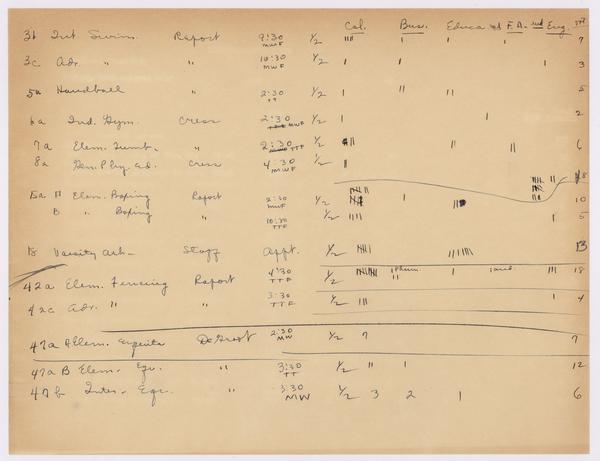 Col. Bus. Educa and F.A. and Eng. Tot
3b Int Swim. Raport 9:30 MWF 1/2 7
3c Adv. " " 10:30 MWF 1/2 3
5a Handball " 2:30 TT 1/2 5
6a Ind. Gym. Cress 2:30 MWF 1/2 2
7a Elem. Tumb. " 2:30 TTF 1/2 6
8a Gen. Phy. Ed. Cress 4:30 MWF 1/2 18
15a A Elem. Boxing Raport 2:30 MWF 1/2 10
B " Boxing " 10:30 TTF 1/2 5
18 Varsity Ath- Stagg Appt. 1/2 13
42a Elem. Fencing Raport 4:30 TTF 1/2 18
42c Adv. " " 3:30 TTF 1/2 4
47a A Elem. DeGroot 2:30 MW 1/2 7 7
47a B Elem. Equ. " 3:30 TT 1/2 11 1 12
47b Inter- Equ. " 3:30 MW 1/2 3 2 1 6